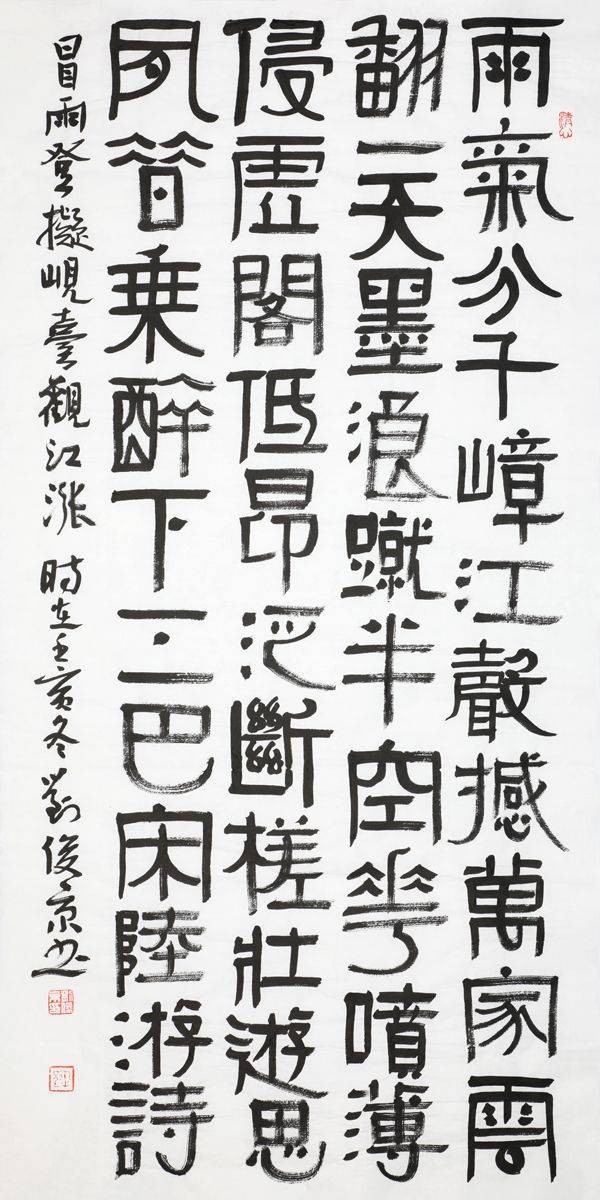 雨氣分千嶂江聲撼萬家雲
翻一天墨浪蹴半空花噴薄
侵虛閣低昂泛斷槎壯遊思
夙昔乘醉下三巴宋陸游詩
冒雨登擬峴臺觀江漲 時在亥冬劉俊京書